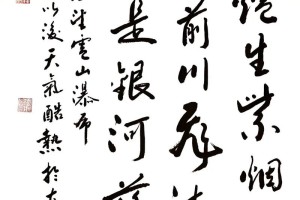 生紫烟
前川飛流
是銀河落
望廬山瀑布
以後天氣酷熱於